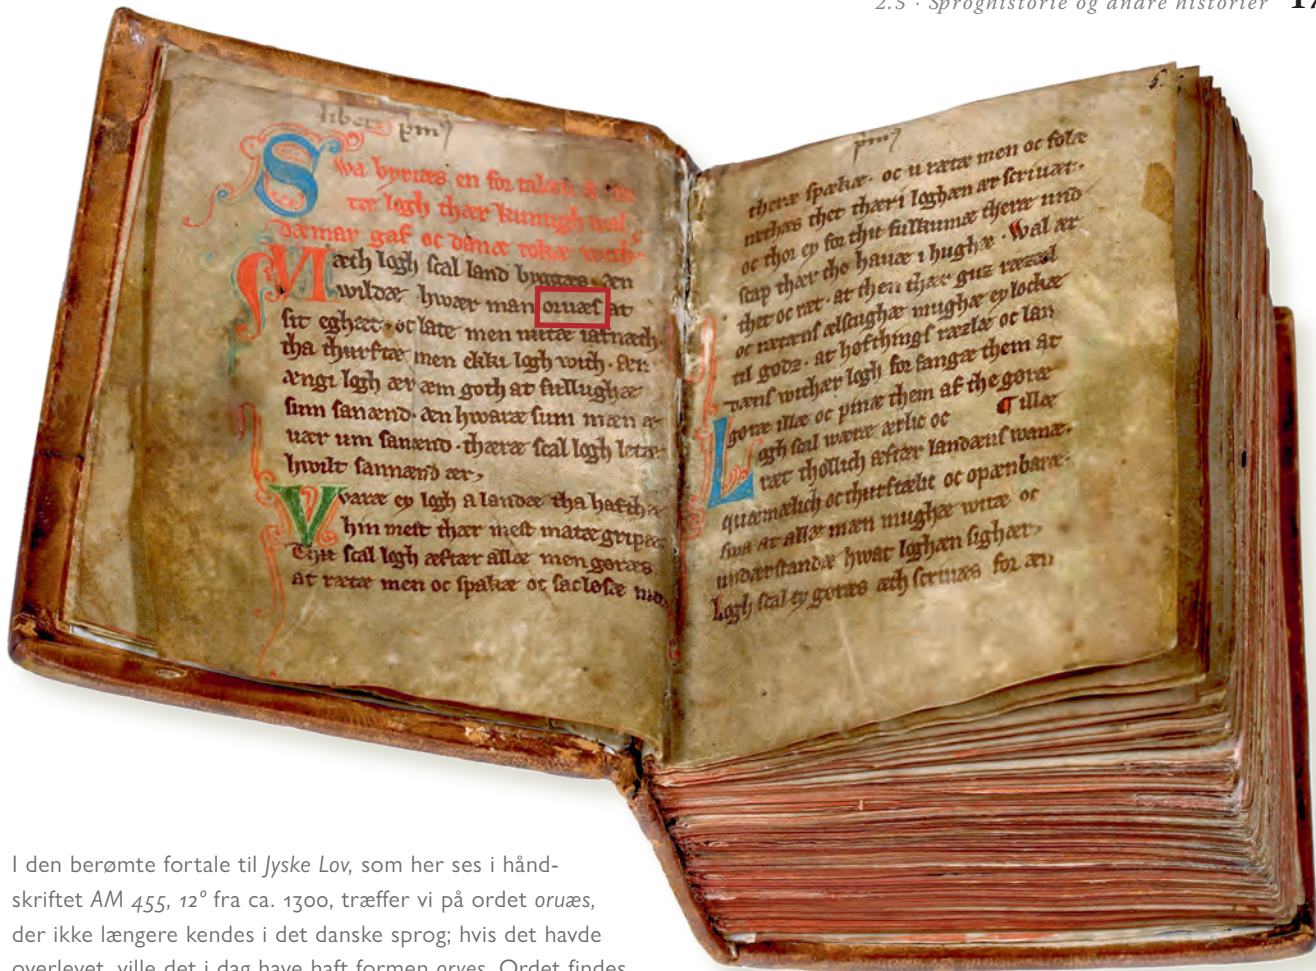 2.5 · Sproghistorie og andre historier
liber pm
Swa byriæs en for talæn a iu
tæ logh thær kunugh wal
dæmar gaf oc danæ tokæ with
Mæth logh scal land byggæs. æn
wildæ hwær man oruæs at
sit eghæt. oc late men nutæ iafnæth.
tha thurftæ men ekki logh with. æn
ængi logh ær æm goth at fullughæ
sum sanænd. æn hwaræ sum mæn a
uær um sanænd. thæræ scal logh letæ
hwilt sannænd ær.
Varæ ey logh a landæ tha hafthæ
hin mest thær mest matæ gripæ.
Thy scal logh æftær allæ men goræs
at rætæ men oc spakæ oc saclosæ
pm
5.
theræ spækiæ. oc u rætæ men oc folæ
rethæs thet thær i loghæn ær scriuat.
oc thor ey for thy fulkumæ theræ und
scap thær the hauæ i hughæ. Wal ær
thet oc ræt. at then thær guz ræzæl
oc rætæns ælscughæ mughæ ey lockæ
til godz. at hofthings ræzlæ oc lan
dæns withær logh for fangæ them at
goræ illæ oc pinæ them af the goræ
¶ illæ
Logh scal wæræ ærlic oc
ræt thollich æftær landæns wanæ.
quæmælich oc thurftælic oc opænbaræ.
swa at allæ mæn mughæ witæ oc
undærstandæ hwat loghæn sighær.
Logh scal ey goræs æth scriuæs for æn
I den berømte fortale til Jyske Lov, som her ses i hånd-
skriftet AM 455, 12° fra ca. 1300, træffer vi på ordet oruæs,
der ikke længere kendes i det danske sprog; hvis det havde
overlevet, ville det i dag have haft formen orves. Ordet findes